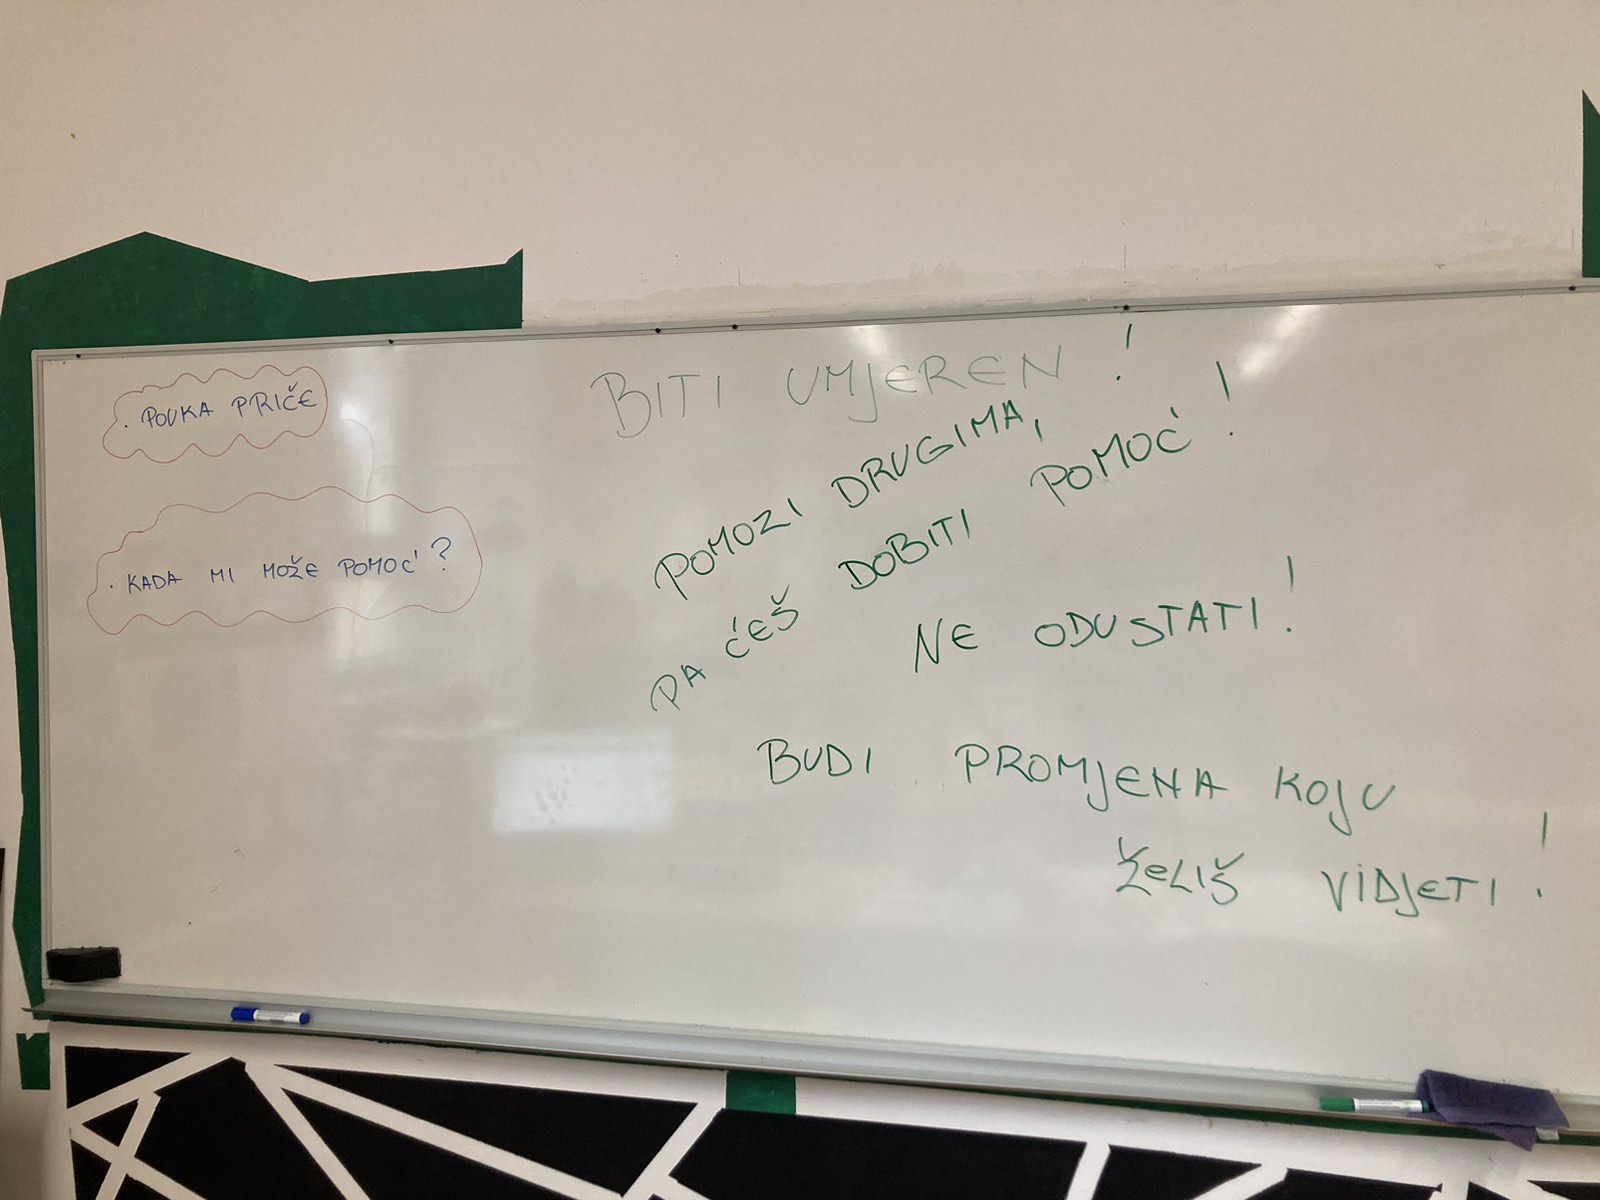 · POUKA PRIČE
· KADA MI MOŽE POMOĆ?
BITI UMJEREN!
POMOZI DRUGIMA,
PA ĆEŠ DOBITI POMOĆ!
NE ODUSTATI!
BUDI PROMJENA KOJU
ŽELIŠ VIDJETI!